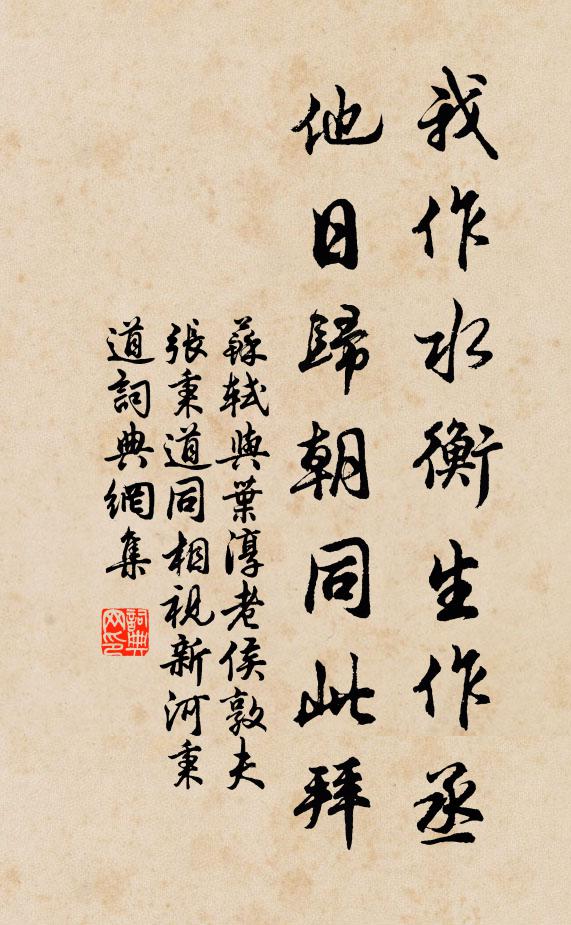 我作水衡生作丞
他日歸朝同此拜
蘇軾與葉淳老侯敦夫
張秉道同相視新河秉
道詞典網集
詞典
网印